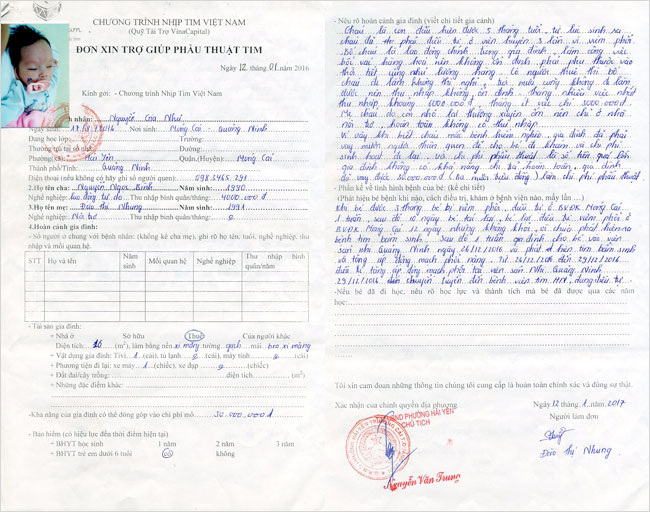 CHƯƠNG TRÌNH NHỊP TIM VIỆT NAM
(Quỹ Tài Trợ VinaCapital)
ĐƠN XIN TRỢ GIÚP PHẪU THUẬT TIM
Ngày 12. tháng 01. năm 2016
Kính gởi: - Chương trình Nhịp Tim Việt Nam
nhân: Nguyễn Gia Như
Ngày sinh: 2016 Nơi sinh: Móng Cái, Quảng Ninh
Lớp đang học: Trường:
Thường trú tại số nhà: Đường:
Phường(xã): Hải Yên Quận,(Huyện): Móng Cái
Thành phố/Tỉnh: Quảng Ninh
Điện thoại (nếu không có hãy ghi số người quen): 098.3465.291
2.Họ tên cha: Nguyễn Ngọc Bình Năm sinh: 1990
Nghề nghiệp: lao động tự do Thu nhập bình quân/tháng: 4000.000đ
3.Họ tên mẹ: Đào Thị Nhung Năm sinh: 1991
Nghề nghiệp: Nội trợ Thu nhập bình quân/tháng: 0
4.Hoàn cảnh gia đình:
- Số người ở chung với bệnh nhân: (không kể cha mẹ), ghi rõ họ tên, tuổi, nghề nghiệp, thu nhập và mối quan hệ.
STT Họ và tên Năm sinh Mối quan hệ Nghề nghiệp Thu nhập bình quân/năm
- Tài sản gia đình:
+ Nhà ở Sở hữu Thuê Của người khác
Diện tích: 16 (m²), làm bằng nền xi măng tường gạch mái bro xi măng
+ Vật dụng gia đình: Tivi 1 (cái), tủ lạnh 0 (cái), máy tính 0 (cái)
+ Phương tiện đi lại: xe máy 1 (chiếc), xe đạp 0 (chiếc)
+ Đất đai/cây trồng: diện tích (m²)
+ Những đặc điểm khác:
-Khả năng của gia đình có thể đóng góp vào chi phí mổ 30.000.000đ
- Bảo hiểm (có hiệu lực đến thời điểm hiện tại)
- BHYT học sinh 1 năm 2 năm 3 năm
- BHYT trẻ em dưới 6 tuổi có không
- Nêu rõ hoàn cảnh gia đình (viết chi tiết gia cảnh)
Cháu là con đầu hiện được 5 tháng tuổi, từ lúc sinh ra
cháu đã phải điều trị ở viện huyện 3 lần vì viêm phổi.
Bố cháu là lao động chính trong gia đình, làm công việc
bốc vác hàng hoá nên không ổn định phải phụ thuộc vào
thời tiết cũng như lượng hàng. Có người thuê thì bố
cháu đi làm không thì nghỉ, trời mưa cũng không đi làm
được nên thu nhập không ổn định, tháng nhiều việc nhất
thu nhập khoảng 6000.000đ, tháng ít việc chỉ 3000.000đ.
Mẹ cháu do con nhỏ lại thường xuyên ốm nên chỉ ở nhà
nội trợ, hoàn toàn không có thu nhập.
Vì vậy khi biết cháu mắc bệnh hiểm nghèo, gia đình đã phải
vay mượn người thân quen để cho bé đi khám và chi phí
sinh hoạt đi lại và chi phí phẫu thuật là số tiền quá lớn
gia đình không có khả năng chi trả hoàn toàn, gia đình
đã vay được 30.000.000đ (ba mươi triệu đồng) làm chi phí phẫu thuật
- Phần kể về tình hình bệnh của bé: (kể chi tiết)
(Phát hiện bệnh khi nào, cách điều trị, khám ở bệnh viện nào, mấy lần ...)
Khi bé được 3 tháng bị viêm phổi, điều trị ở BVĐK Móng Cái
1 tuần, sau đó 10 ngày bé tái lại, bé lại điều trị viêm phổi ở
BVĐK Móng Cái 12 ngày nhưng không khỏi, vì chưa phát hiện ra
bệnh tim bẩm sinh. sau đó 1 tuần gia đình cho bé vào viện
sản nhi Quảng Ninh ngày 26/12/2016 và phát hiện tim bẩm sinh
và tăng áp động mạch phổi nặng. Từ 26/12/2016 đến 29/12/2016
điều trị tăng áp động mạch phổi tại viện sản Nhi Quảng Ninh.
29/12/2016 đến chuyển tuyến đến bệnh viện tim HN, dùng điều trị
- Nếu bé đã đi học, nêu rõ học lực và thành tích mà bé đã được qua các năm học:
Tôi xin cam đoan những thông tin chúng tôi cung cấp là hoàn toàn chính xác và đúng sự thật.
Xác nhận của chính quyền địa phương
Ngày 12 tháng 1 năm 2017
UBND PHƯỜNG HẢI YÊN
CHỦ TỊCH
Người làm đơn
Nguyễn Văn Trung
Đào Thị Nhung